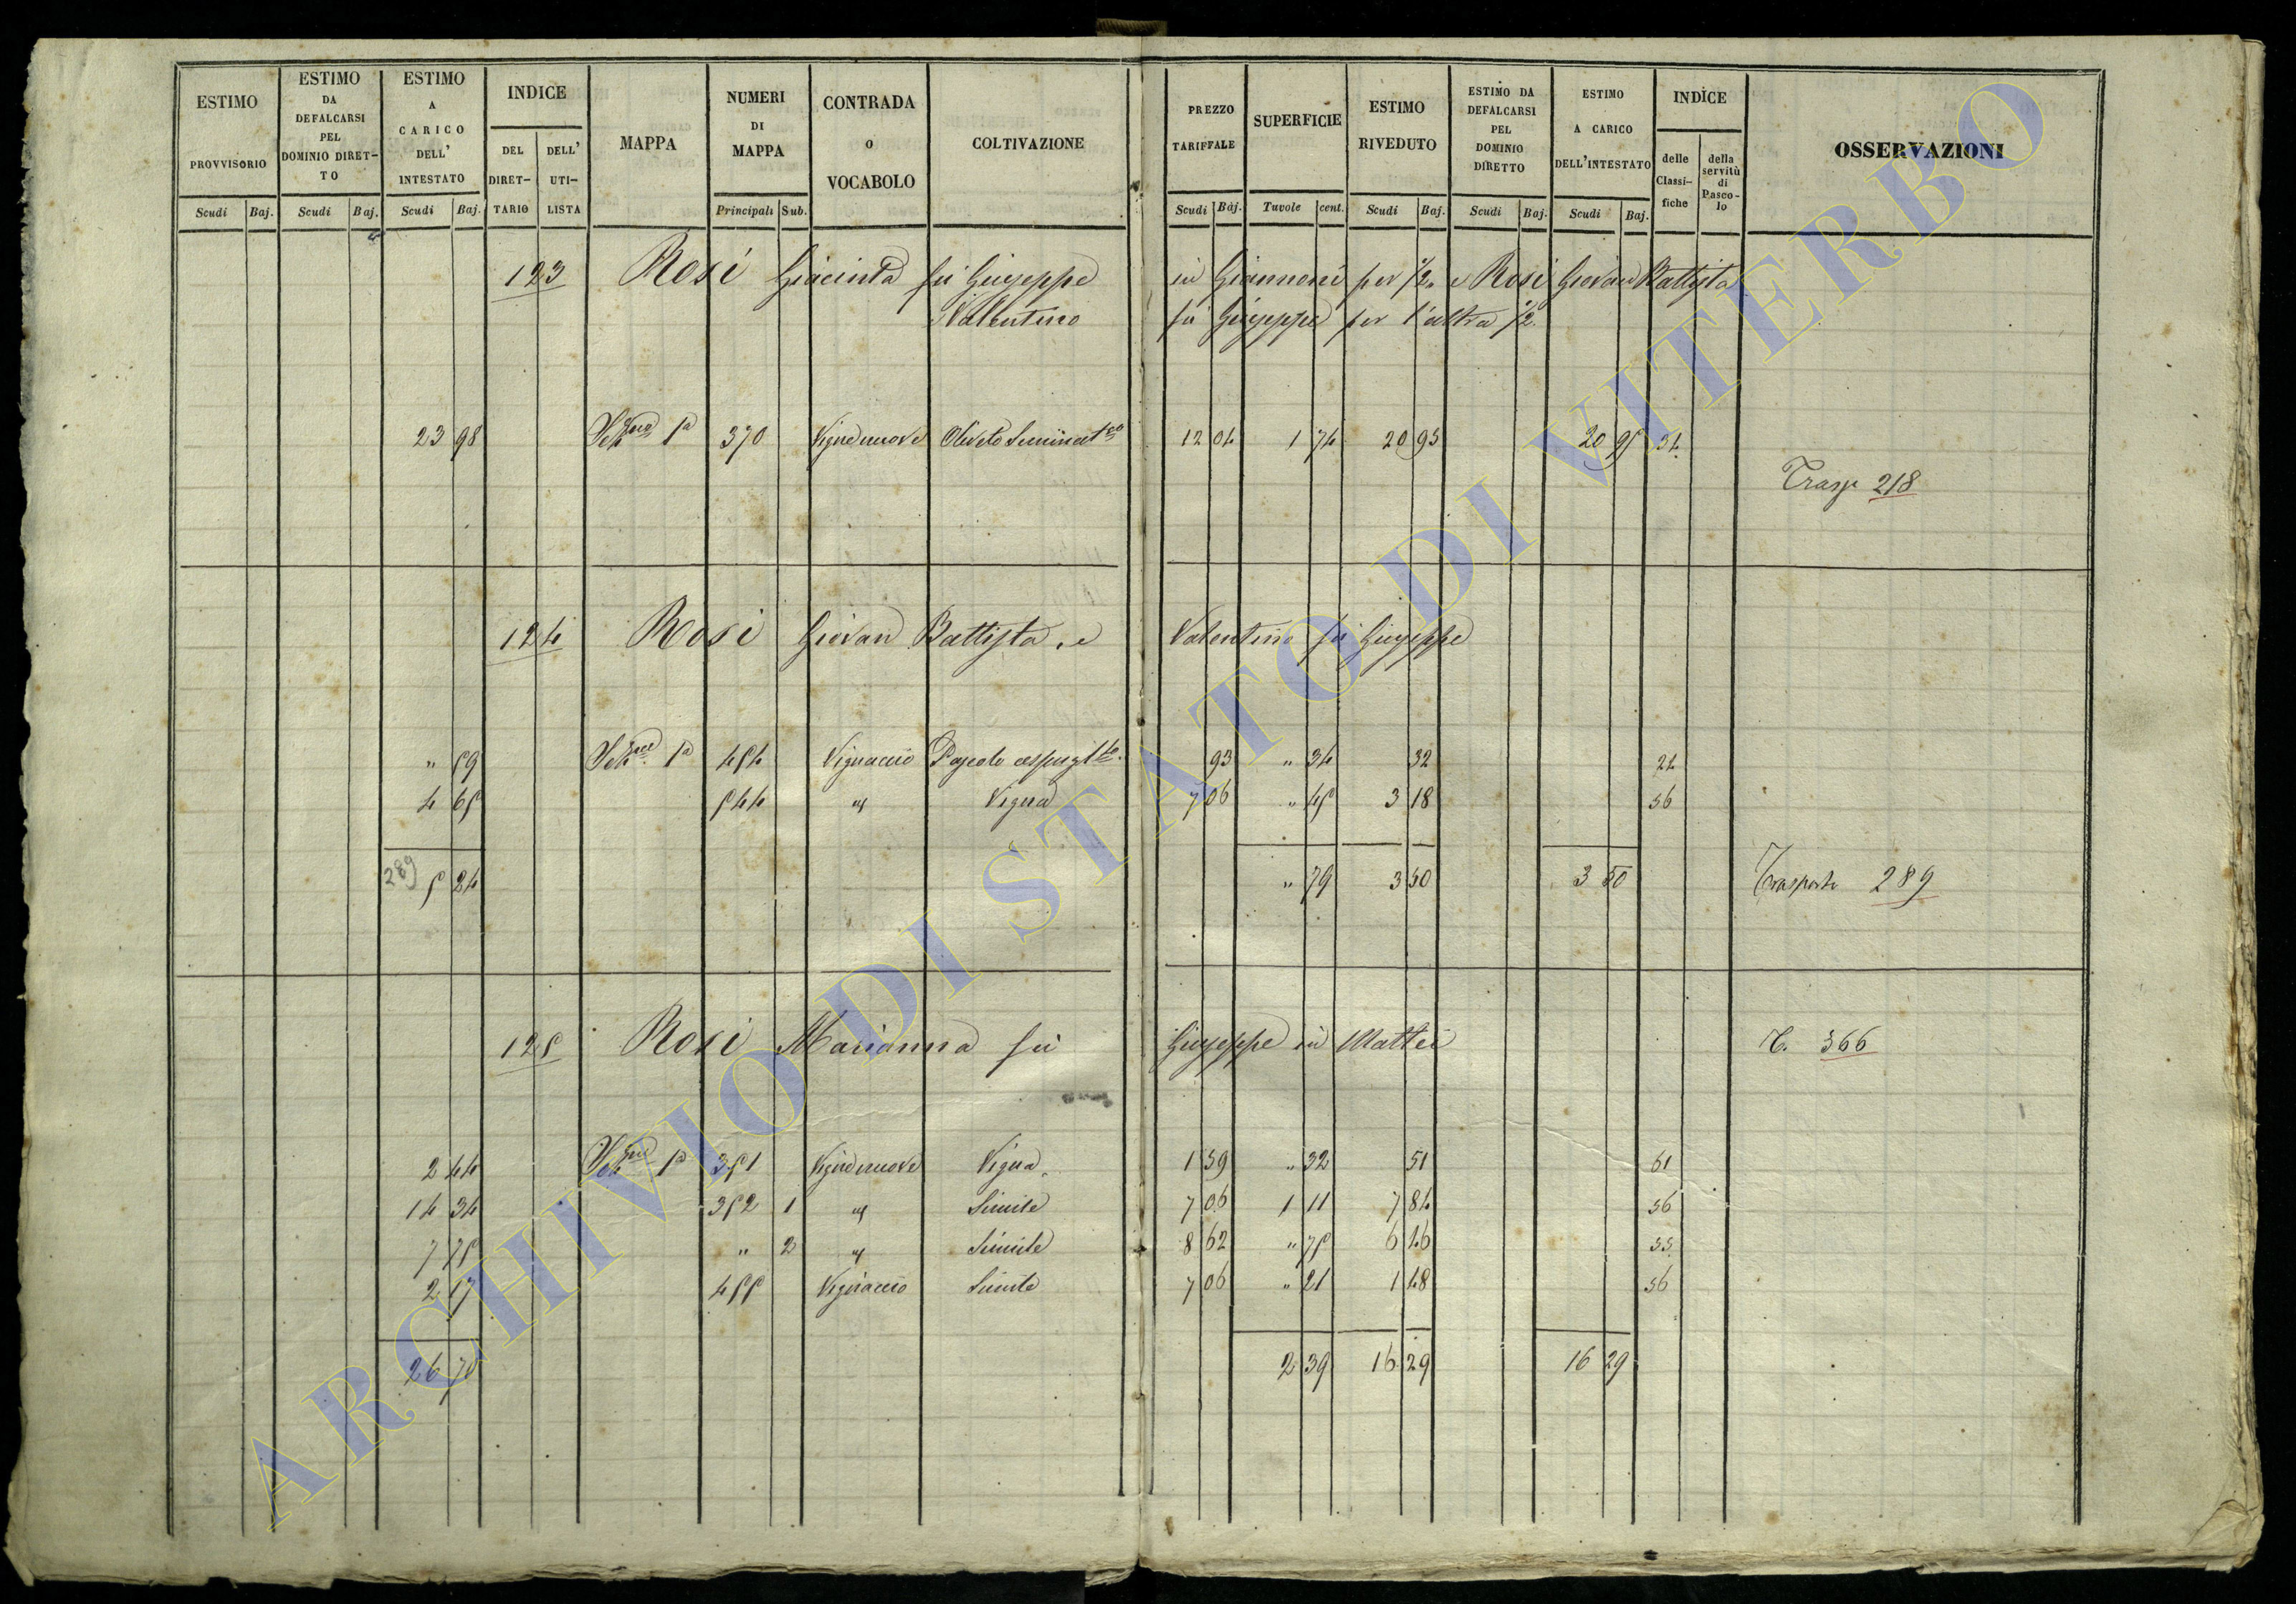 ESTIMO PROVVISORIO
ESTIMO DA DEFALCARSI PEL DOMINIO DIRET-TO
ESTIMO A CARICO DELL' INTESTATO
INDICE
DEL DIRET-TARIO
DELL' UTI-LISTA
MAPPA
NUMERI DI MAPPA
CONTRADA O VOCABOLO
COLTIVAZIONE
PREZZO TARIFFALE
SUPERFICIE
ESTIMO RIVEDUTO
ESTIMO DA DEFALCARSI PEL DOMINIO DIRETTO
ESTIMO A CARICO DELL'INTESTATO
INDICE
delle Classi-fiche
della servitù di Pasco-lo
OSSERVAZIONI
Scudi Baj. Scudi Baj. Scudi Baj. Principali Sub. Scudi Baj. Tavole cent. Scudi Baj. Scudi Baj. Scudi Baj.
123 Rosi Giacinta fu Giuseppe in Giannoni per 1/2 e Rosi Giovan Battista
Valentino fu Giuseppe per l'altra 1/2
23 98 1a 370 Vigne nuove Oliveto Seminat 12 04 1 74 20 95 20 95 34
Trasp 218
124 Rosi Giovan Battista, e Valentino fu Giuseppe
" 59 1a 454 Vignaccio Pascolo cespuglto 93 " 34 32 24
4 65 544 " Vigna 7 06 " 45 3 18 56
289 5 24 " 79 3 50 3 50 Trasporto 289
125 Rosi Marianna fu Giuseppe in Mattei T. 366
2 44 1a 351 Vigne nuove Vigna 1 59 " 32 51 61
14 34 352 1 " Simile 7 06 1 11 7 84 56
7 75 " 2 " Simile 8 62 " 75 6 46 55
2 17 455 Vignaccio Simile 7 06 " 21 1 48 56
26 70 2 39 16 29 16 29
ARCHIVIO DI STATO DI VITERBO